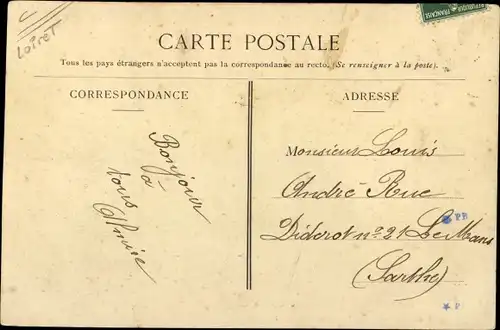 Loiret
RÉPUBLIQUE FRANÇAISE
CARTE POSTALE
Tous les pays étrangers n'acceptent pas la correspondance au recto. (Se renseigner à la poste).
CORRESPONDANCE
Bonjour
à
tous
ADRESSE
Monsieur Louis
André Rue
Diderot nº 21 Le Mans
(Sarthe)
PR